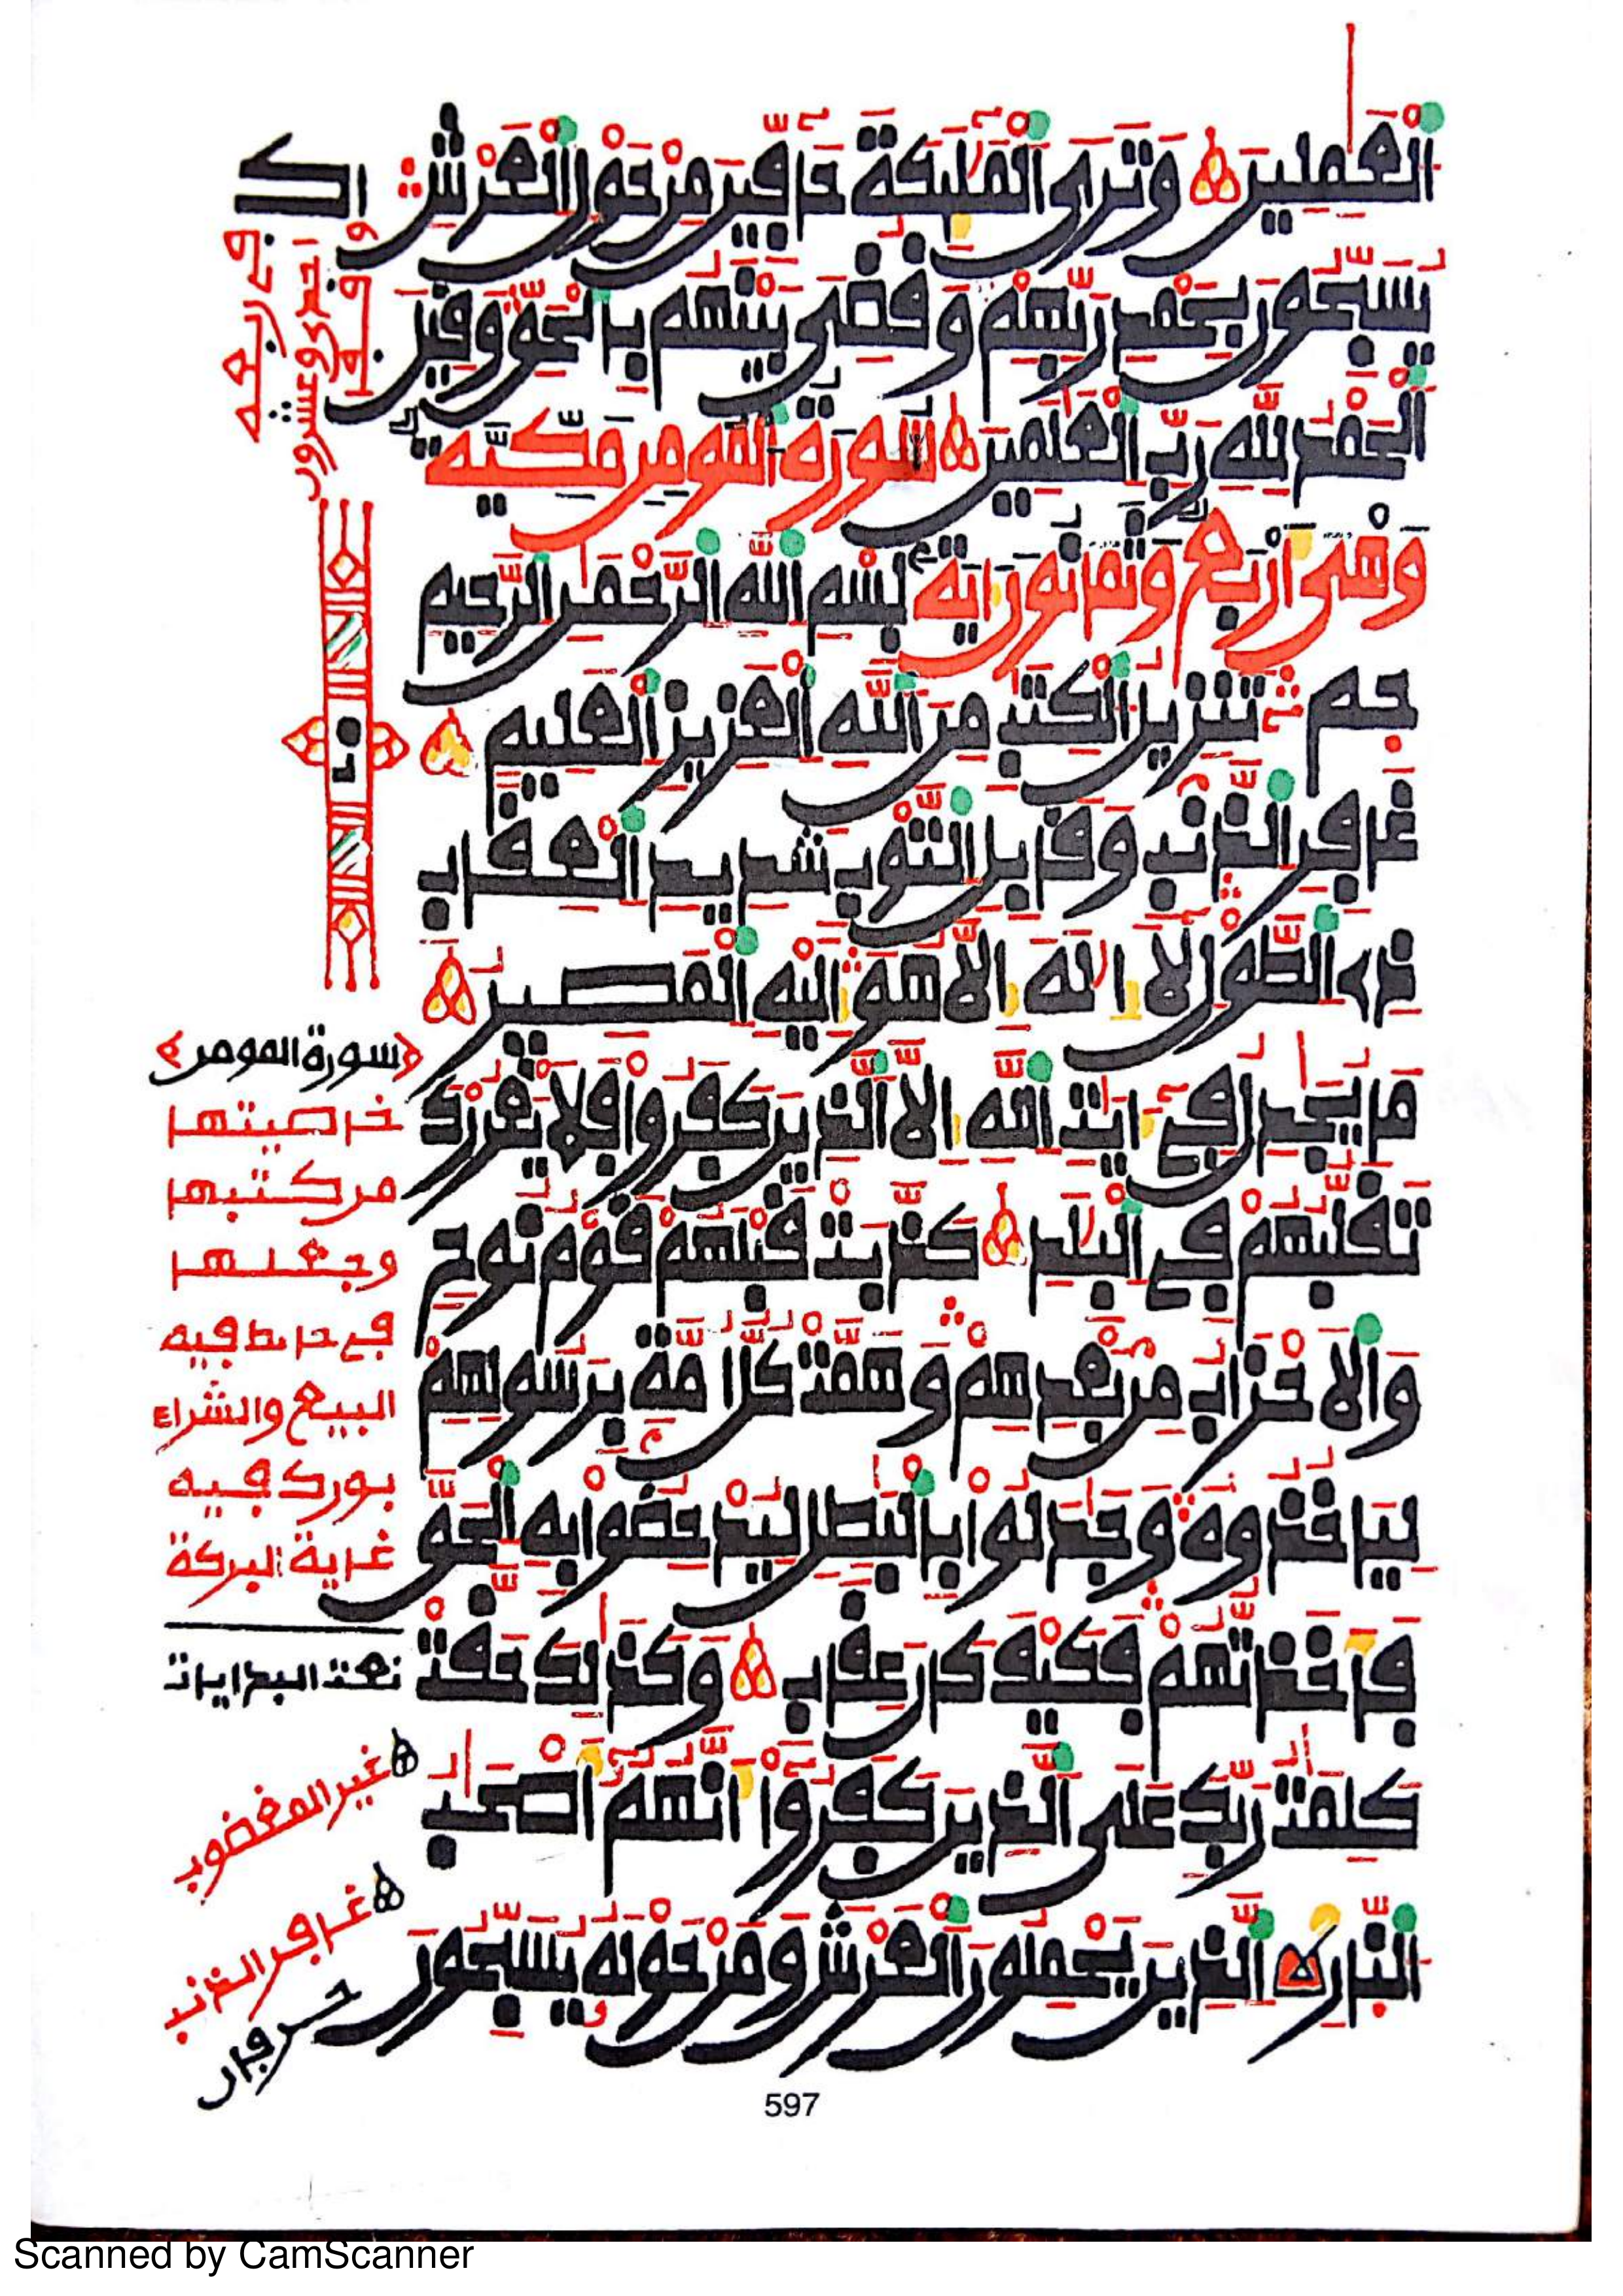 اَ۬لْعَٰمِلِينَ وَتَرَى اَ۬لْمَلَٰٓئِكَةَ حَآفِّينَ مِنْ حَوْلِ اِ۬لْعَرْشِ
يُسَبِّحُونَ بِحَمْدِ رَبِّهِمْ وَقُضِيَ بَيْنَهُم بِالْحَقِّ وَقِيلَ
اَ۬لْحَمْدُ لِلهِ رَبِّ اِ۬لْعَٰلَمِينَ سورة المومن مكية
وهي أربع وثمانون آية بِسْمِ اِ۬للَّهِ اِ۬لرَّحْمَٰنِ اِ۬لرَّحِيمِ
حم تَنزِيلُ اُ۬لْكِتَٰبِ مِنَ اَ۬للَّهِ اِ۬لْعَزِيزِ اِ۬لْعَلِيمِ
غَافِرِ اِ۬لذَّنۢبِ وَقَابِلِ اِ۬لتَّوْبِ شَدِيدِ اِ۬لْعِقَابِ
ذِي اِ۬لطَّوْلِ لَآ إِلَٰهَ إِلَّا هُوَ إِلَيْهِ اِ۬لْمَصِيرُ
مَا يُجَٰدِلُ فِيٓ ءَايَٰتِ اِ۬للَّهِ إِلَّا اَ۬لذِينَ كَفَرُواْ فَلَا يَغْرُرْكَ
تَقَلُّبُهُمْ فِي اِ۬لْبِلَٰدِ كَذَّبَتْ قَبْلَهُمْ قَوْمُ نُوحٍ
وَالْأَحْزَابُ مِنۢ بَعْدِهِمْ وَهَمَّتْ كُلُّ أُمَّةِۢ بِرَسُولِهِمْ
لِيَأْخُذُوهُ وَجَٰدَلُواْ بِالْبَٰطِلِ لِيُدْحِضُواْ بِهِ اِ۬لْحَقَّ
فَأَخَذتُّهُمْ فَكَيْفَ كَانَ عِقَابِ وَكَذَٰلِكَ حَقَّتْ
كَلِمَٰتُ رَبِّكَ عَلَى اَ۬لذِينَ كَفَرُوٓاْ أَنَّهُمُۥٓ أَصْحَٰبُ
اُ۬لنَّارِ اِ۬لذِينَ يَحْمِلُونَ اَ۬لْعَرْشَ وَمَنْ حَوْلَهُۥ يُسَبِّحُونَ
سورة المومن
خاصيتها
من كتبها
وجعلها
في حائط فيه
البيع والشراء
بورك فيه
غاية البركة
نعت البدايات
غير المغضوب
غافر الذنب
597
Scanned by CamScanner